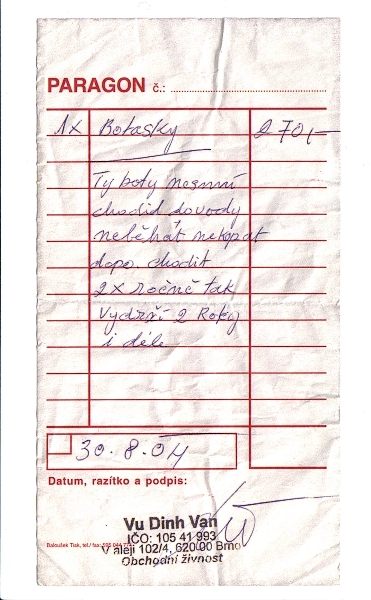 PARAGON č.:
1x Botasky 270,-
Ty boty nesmí
chodid do vody
neběhát nekopat
dopo. chodit
2x ročně tak
vydrží 2 Roky
i déle
30.8.04
Datum, razítko a podpis:
Vu Dinh Van
IČO: 105 41 993
V aleji 102/4, 620 00 Brno
Obchodní živnost
Baloušek Tisk, tel./ fax: